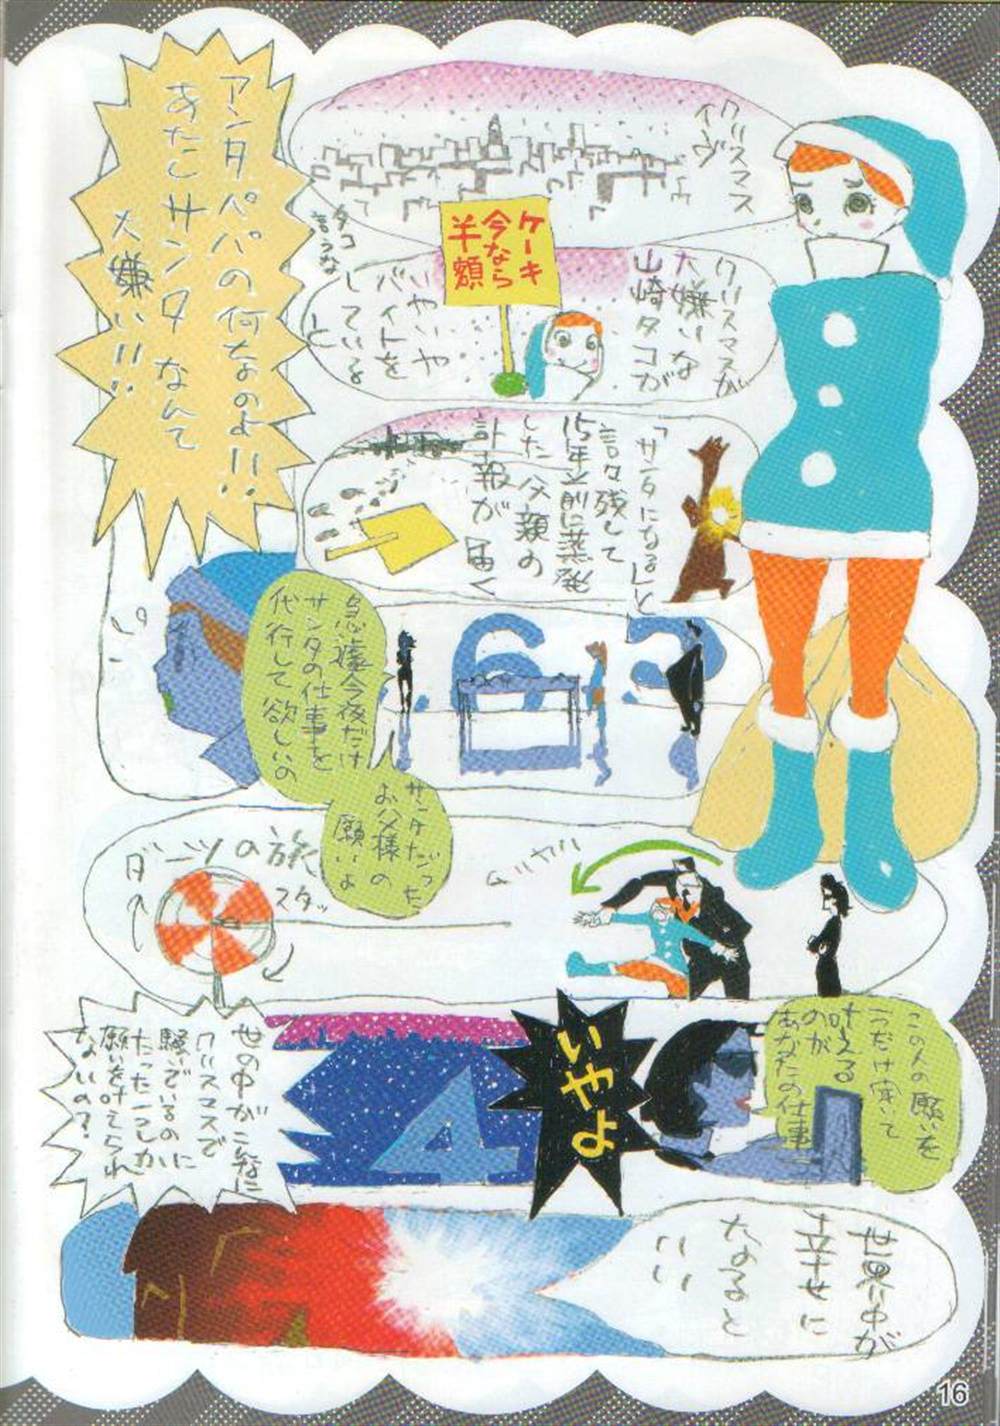 クリスマス
イヴ
クリスマスが
大嫌いな
山崎タコが
ケーキ
今なら
半額
いやいや
バイトを
している
と
タコ
言うな
「サンタになる」と
言い残して
15年前に蒸発
した父親の
訃報が
届く
アンタパパの何なのよ!!
あたしサンタなんて
大嫌い!!
急遽今夜だけ
サンタの仕事を
代行して欲しいの
サンタだった
お父様の
願いよ
ダーツの旅
スタッ
この人の願いを
一つだけ聞いて
叶える
のが
あなたの仕事
いやよ
4
世の中がこんなに
クリスマスで
騒いでいるのに
たった一つしか
願いを叶えられ
ないの?
世界中が
幸せに
なると
いい
16